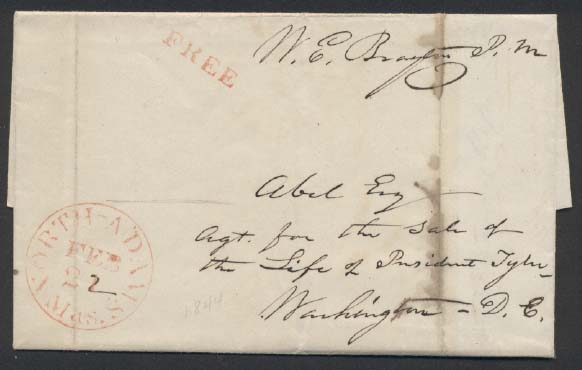 FREE
W. E. Brayton P. M
Abel Esq
Agt. for the Sale of
the Life of President Tyler
Washington - D. C.
NORTH-ADAMS Mas.
FEB
2
1844